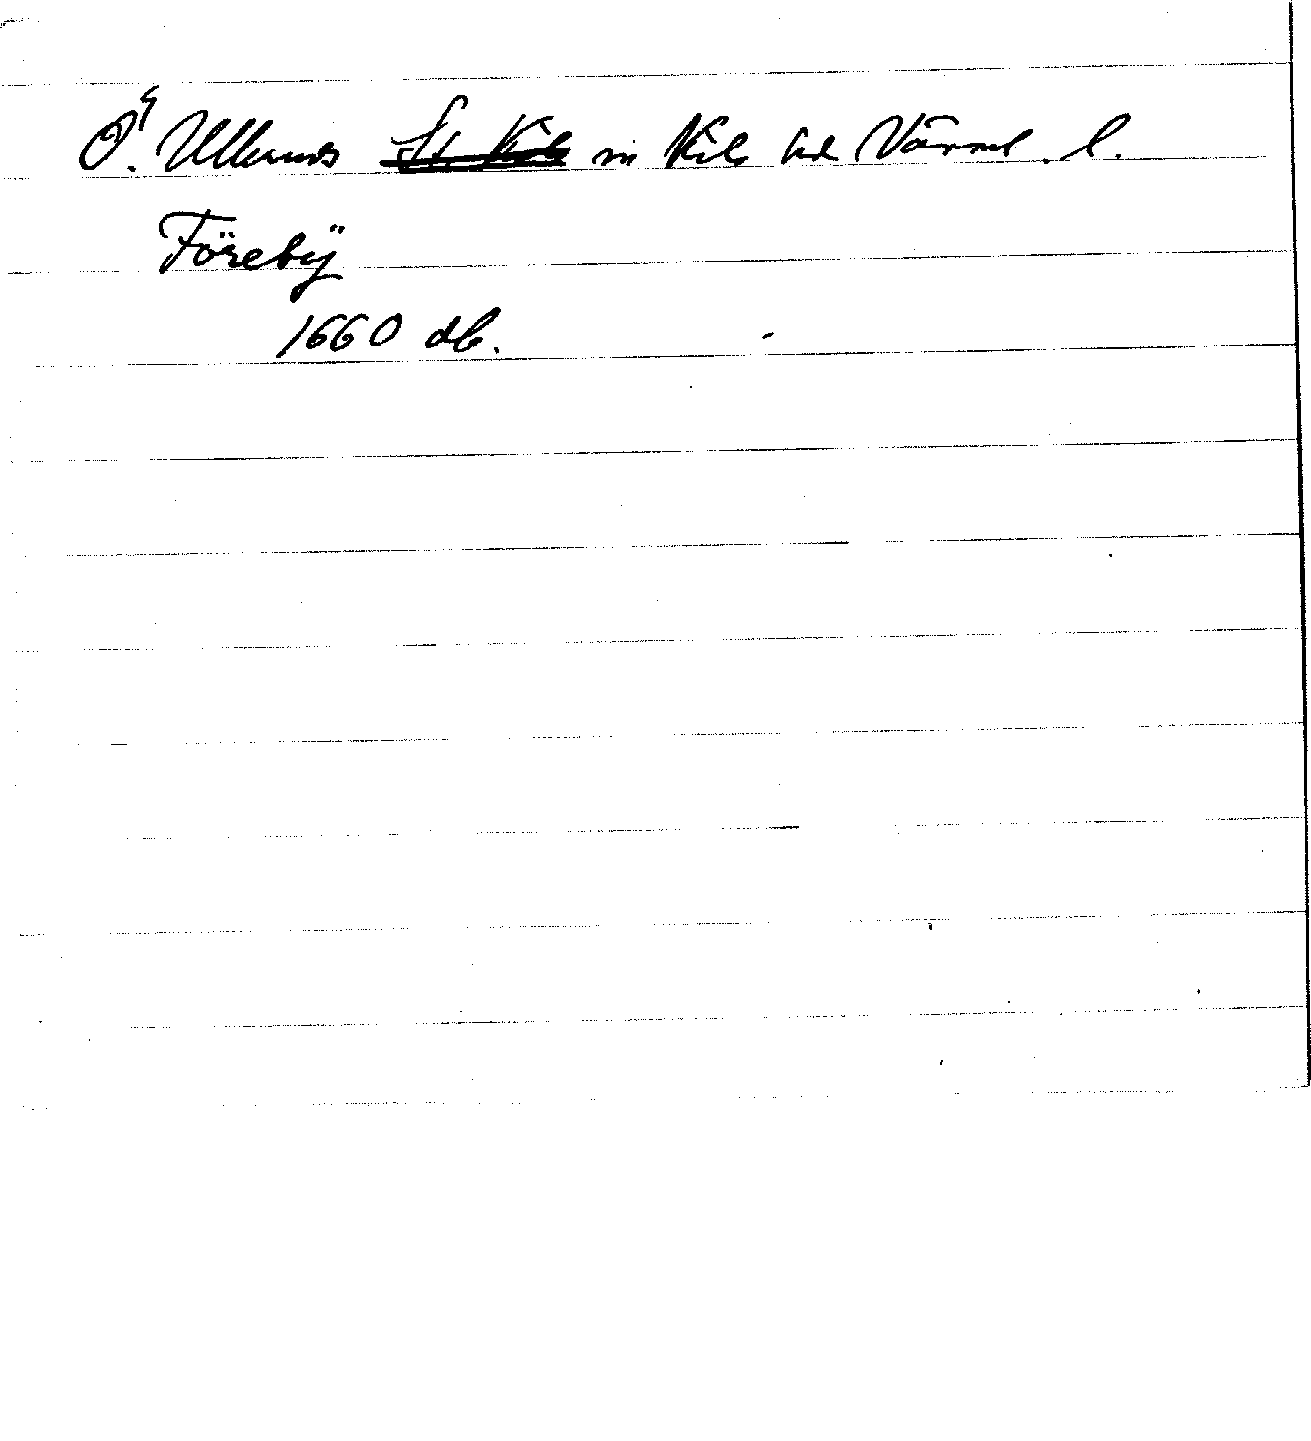 Ö. Ullerud ~~St. Kil~~ sn Kils hd Värml. l.
Förebÿ
1660 db.